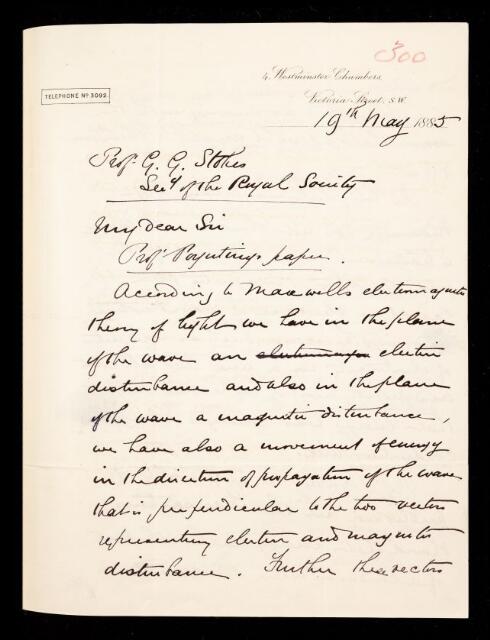 300
4, Westminster Chambers,
TELEPHONE No 3092.
Victoria Street, S.W.
19th May 1885
Prof. G. G. Stokes
Secy of the Royal Society
My dear Sir
Prof Poyntings paper.
According to Maxwells electromagnetic
theory of light we have in the plane
of the wave an electromagn electric
disturbance and also in the plane
of the wave a magnetic disturbance,
we have also a movement of energy
in the direction of propagation of the wave
that is perpendicular to the two vectors
representing electric and magnetic
disturbance. Further these vectors